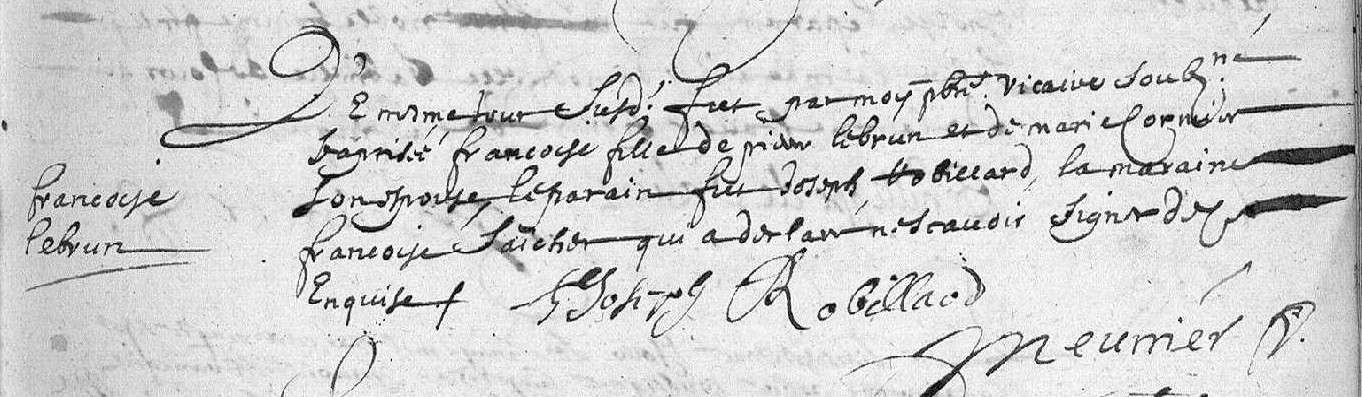 francoise
lebrun
Le mesme Jour Susd. fut par moy pbre. Vicaire Soubz.né
baptisée francoise fille de pierre lebrun et de marie Cormier
Son Espouse, le parain fut Joseph Robillard, la maraine
francoise qui a declaré ne scavoir Signer de ce
Enquise
Joseph Robillaod
Meunier P.